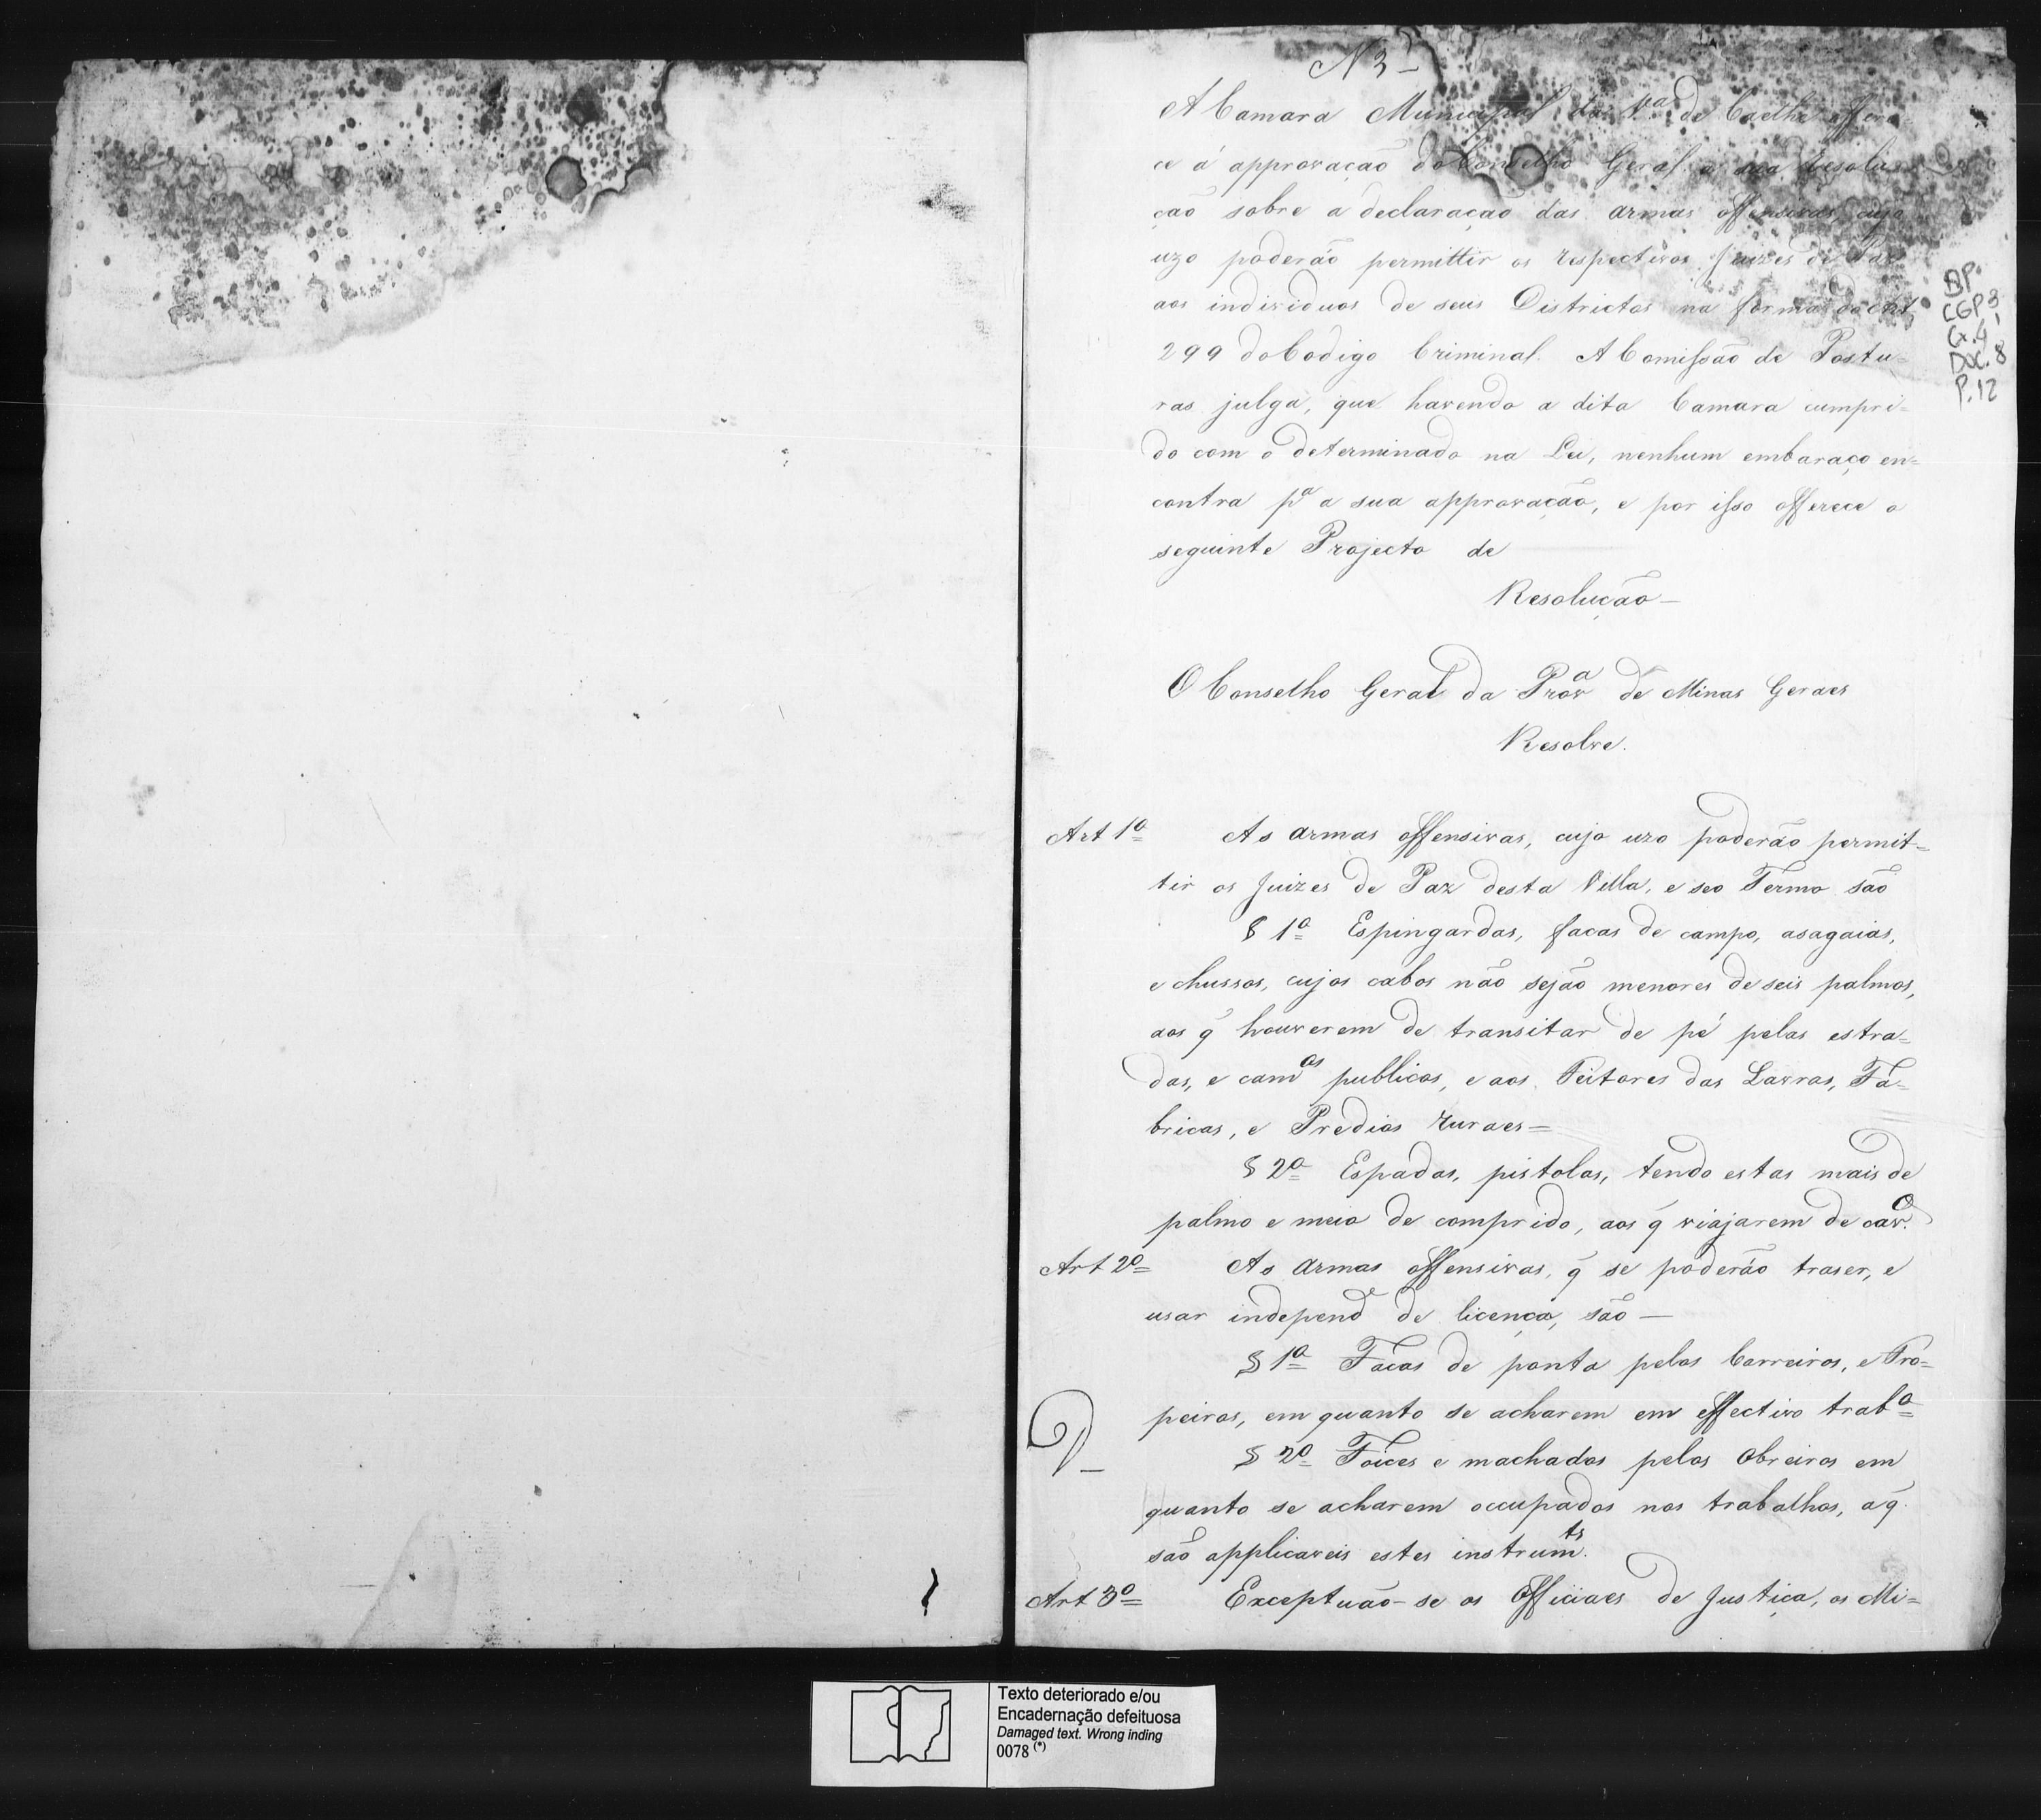 N 3
A Camara Municipal da V.ª de Caethe offere-
ce á approvação do Conselho Geral a sua Resolu-
ção sobre a declaração das armas offensivas, cujo
uzo poderão permittir os respectivos Juizes de Paz
aos individuos de seus Districtos na forma do Art.
299 do Codigo Criminal. A Comissão de Postu-
ras julga, que havendo a dita Camara cumpri=
do com o determinado na Lei, nenhum embaraço en=
contra pª a sua approvação, e por isso offerece o
seguinte Projecto de
Resolução —
O Conselho Geral da Provª de Minas Geraes
Resolve.
Art 1º As armas offensivas, cujo uzo poderão permit=
tir os Juizes de Paz desta Villa, e seo Termo são
§ 1º Espingardas, facas de campo, asagaias,
e chussos, cujos cabos não sejão menores de seis palmos,
aos q̃ houverem de transitar de pé pelas estra=
das, e camos publicos, e aos Feitores das Lavras, Fa=
bricas, e Predios ruraes =
§ 2º Espadas, pistolas, tendo estas mais de
palmo e meio de comprido, aos q̃ viajarem de cavº.
Art 2º As armas offensivas, q̃ se poderão traser, e
usar independe de licença, são —
§ 1º Facas de ponta pelos Carreiros, e Tro=
peiros, em quanto se acharem em effectivo trabº
§ 2º Foices e machados pelos Obreiros em
quanto se acharem occupados nos trabalhos, a q̃
são applicaveis estes instrumts.
Art 3º Exceptuão-se os Officiaes de Justiça, os Mi=
AP.
CGP 3,
Cx. 4
DOC. 8
P. 12
Texto deteriorado e/ou
Encadernação defeituosa
Damaged text. Wrong inding
0078 (*)